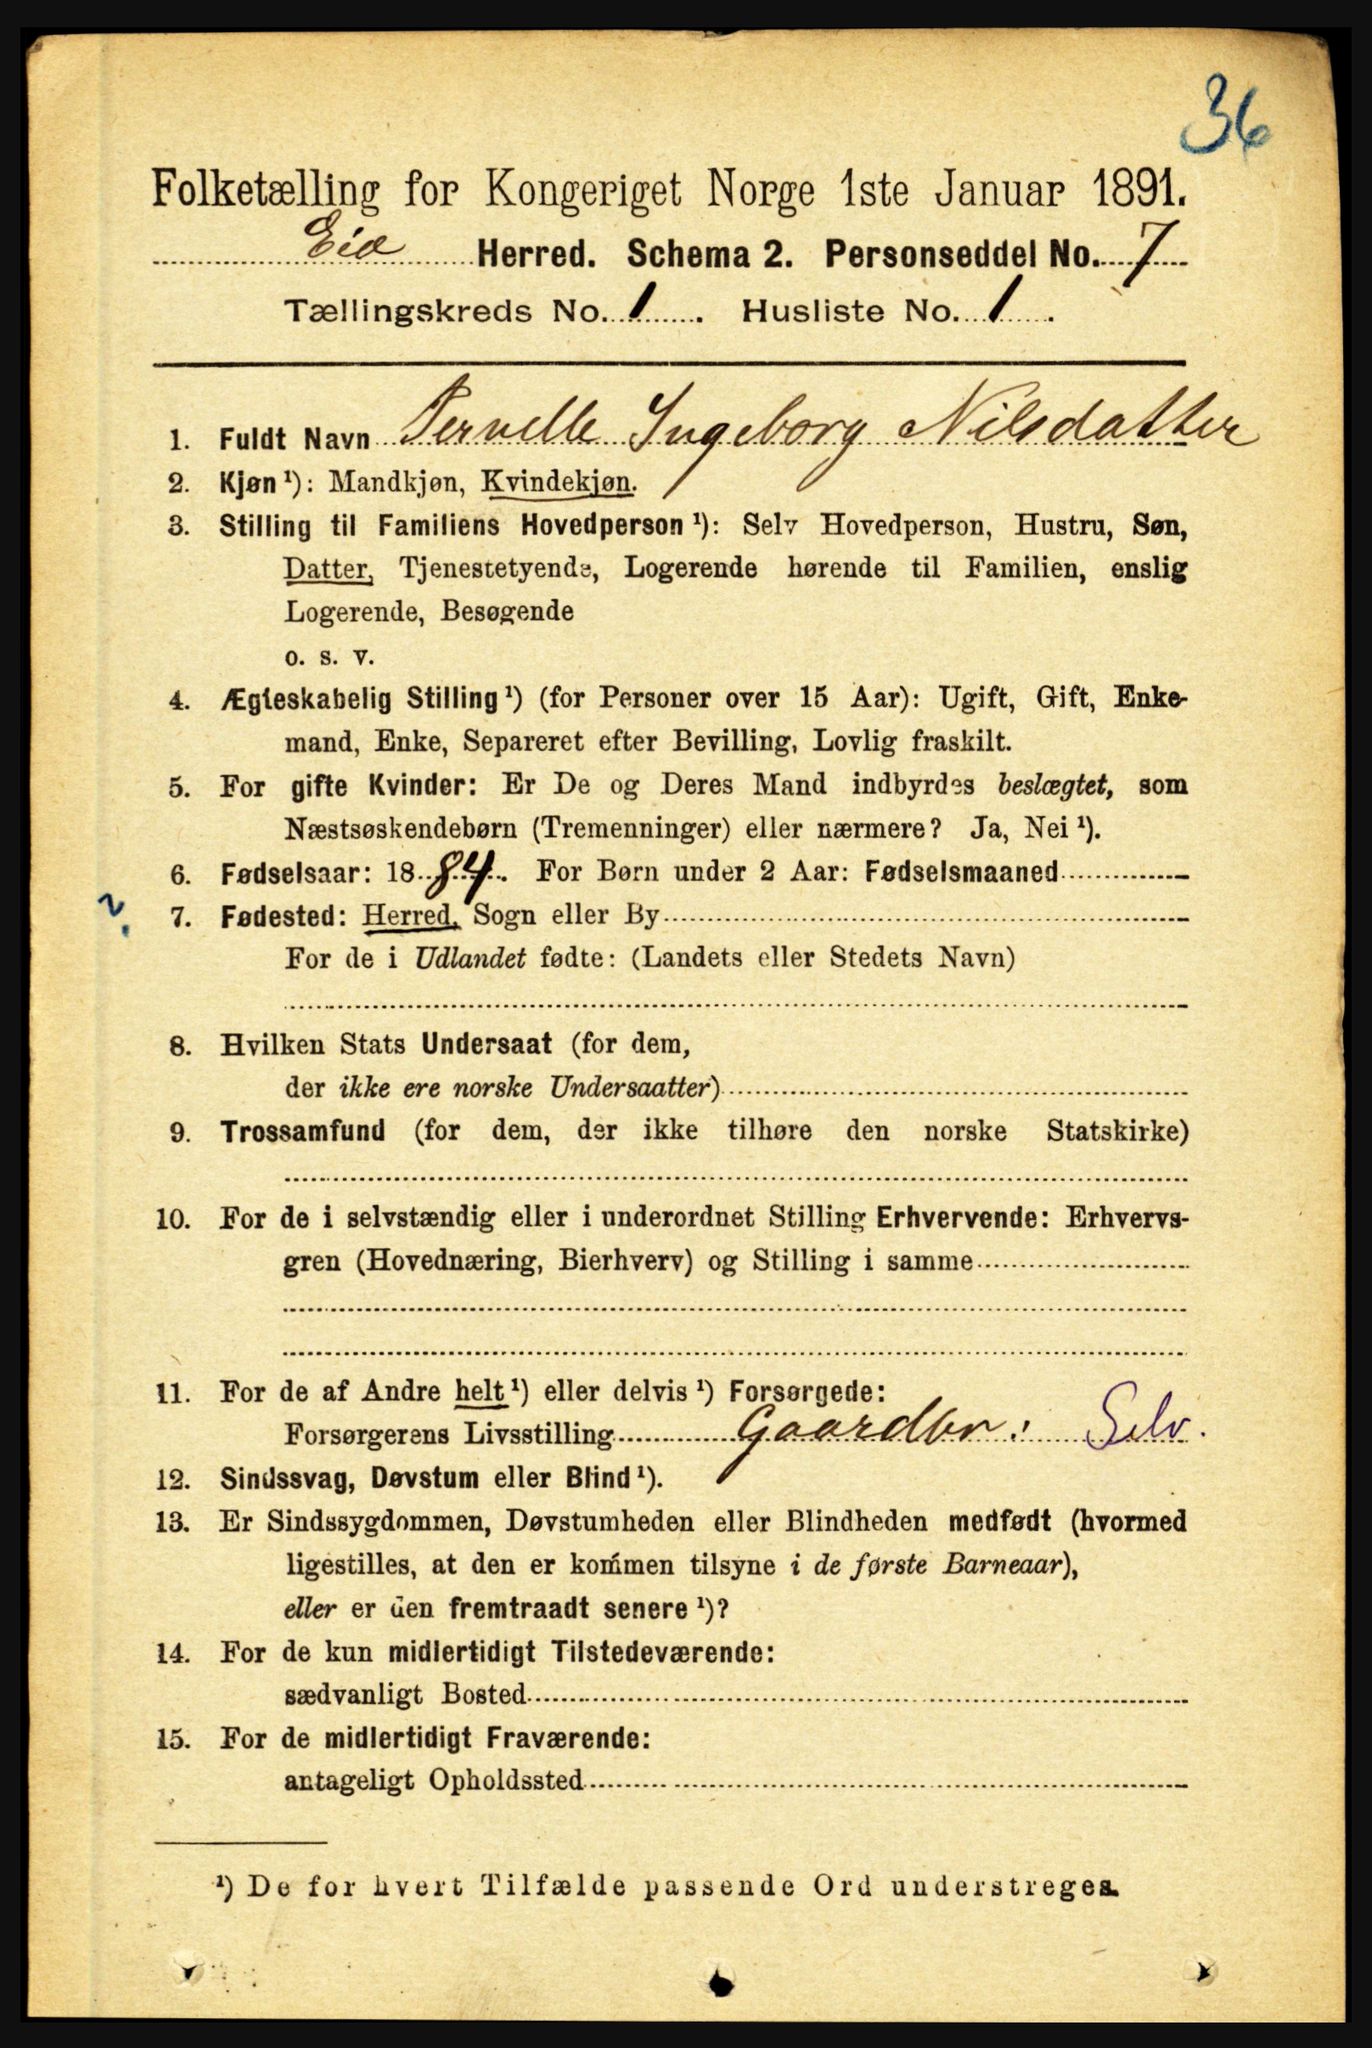 36
Folketælling for Kongeriget Norge 1ste Januar 1891.
Eid Herred. Schema 2. Personseddel No. 7
Tællingskreds No. 1. Husliste No. 1.
1. Fuldt Navn Pernelle Ingeborg Nilsdatter
2. Kjøn ¹): Mandkjøn, Kvindekjøn.
3. Stilling til Familiens Hovedperson ¹): Selv Hovedperson, Hustru, Søn,
Datter, Tjenestetyende, Logerende hørende til Familien, enslig
Logerende, Besøgende
o. s. v.
4. Ægteskabelig Stilling ¹) (for Personer over 15 Aar): Ugift, Gift, Enke-
mand, Enke, Separeret efter Bevilling, Lovlig fraskilt.
5. For gifte Kvinder: Er De og Deres Mand indbyrdes beslægtet, som
Næstsøskendebørn (Tremenninger) eller nærmere? Ja, Nei ¹).
6. Fødselsaar: 1884. For Børn under 2 Aar: Fødselsmaaned
7. Fødested: Herred, Sogn eller By
For de i Udlandet fødte: (Landets eller Stedets Navn)
8. Hvilken Stats Undersaat (for dem,
der ikke ere norske Undersaatter)
9. Trossamfund (for dem, der ikke tilhøre den norske Statskirke)
10. For de i selvstændig eller i underordnet Stilling Erhvervende: Erhvervs-
gren (Hovednæring, Bierhverv) og Stilling i samme
11. For de af Andre helt ¹) eller delvis ¹) Forsørgede:
Forsørgerens Livsstilling Gaardbr: Selv.
12. Sindssvag, Døvstum eller Blind ¹).
13. Er Sindssygdommen, Døvstumheden eller Blindheden medfødt (hvormed
ligestilles, at den er kommen tilsyne i de første Barneaar),
eller er den fremtraadt senere ¹)?
14. For de kun midlertidigt Tilstedeværende:
sædvanligt Bosted
15. For de midlertidigt Fraværende:
antageligt Opholdssted
¹) De for hvert Tilfælde passende Ord understreges.